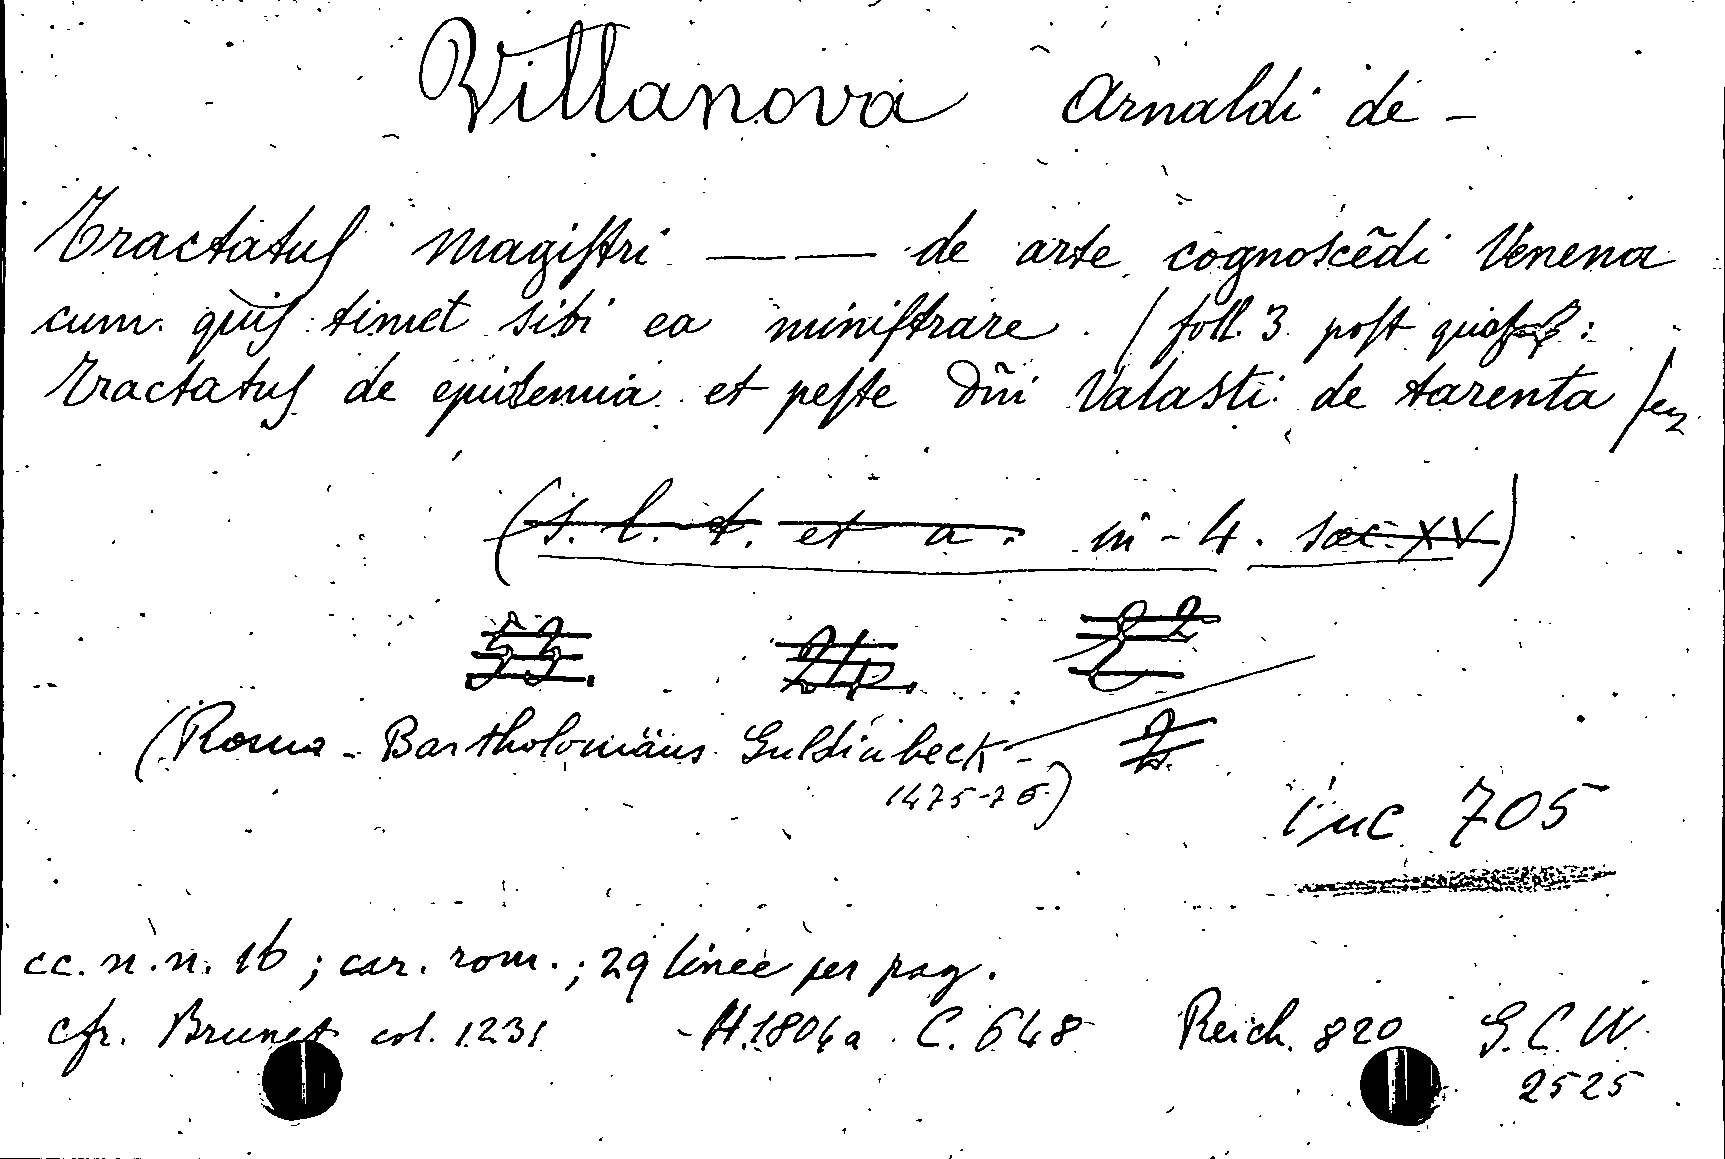 Villanova Arnaldi de -
Tractatuſ magiſtri —— de arte cognoscēdi Venena
cum quiſ timet sibi ea miniſtrare. / foll. 3 poſt :
Tractatuſ de epidemia et peſte dñi Valasti de tarenta /
(s. l. t. et a. in - 4. saec. XV)
53. 24. 22
2
(Roma - Bartholomäus Guldinbeck -
1475-76)
inc 705
cc. n. n. 16 ; car. rom. ; 29 linee per pag.
cfr. Brunet col. 1231 - H. 1804a C. 648 Reich. 820 G. C. W.
2525